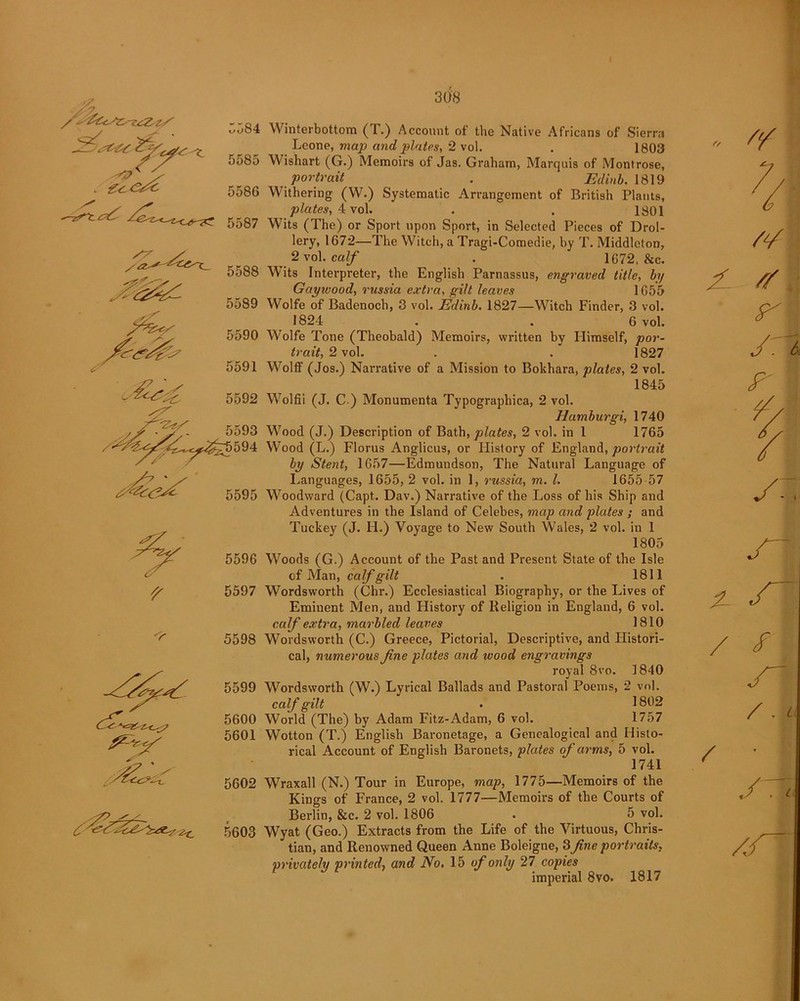 308
5584 Winterbottom (T.) Account of the Native Africans of Sierra
Leone, map and plates, 2 vol. . 1803
5585 Wishart (G.) Memoirs of Jas. Graham, Marquis of Montrose,
portrait . Edinb. 1819
5586 Withering (W.) Systematic Arrangement of British Plants,
plates, 4 vol. . . 1801
5587 Wits (The) or Sport upon Sport, in Selected Pieces of Drol-
lery, 1672—The Witch, a Tragi-Comedie, by T. Middleton,
2 vol. calf . 1672, &c.
5588 Wits Interpreter, the English Parnassus, engraved title, by
Gaywood, russia extra, gilt leaves 1655
5589 Wolfe of Badenoch, 3 vol. Edinb. 1827—Witch Finder, 3 vol.
1824 . . 6 vol.
5590 Wolfe Tone (Theobald) Memoirs, written by Himself, por-
trait, 2 vol. . . 1827
5591 Wolff (Jos.) Narrative of a Mission to Bokhara, plates, 2 vol.
1845
5592 Wolfii (J. C.) Monumenta Typographica, 2 vol.
Hamburgi, 1740
5593 Wood (J.) Description of Bath, plates, 2 vol. in 1 1765
5594 Wood (L.) Florus Anglicus, or History of England, portrait
by Stent, 1657—Edmundson, The Natural Language of
Languages, 1655, 2 vol. in 1, russia, m. l. 1655-57
5595 Woodward (Capt. Dav.) Narrative of the Loss of his Ship and
Adventures in the Island of Celebes, map and plates ; and
Tuckey (J. H.) Voyage to New South Wales, 2 vol. in 1
1805
5596 Woods (G.) Account of the Past and Present State of the Isle
of Man, calf gilt . 1811
5597 Wordsworth (Chr.) Ecclesiastical Biography, or the Lives of
Eminent Men, and History of Religion in England, 6 vol.
calf extra, marbled leaves 1810
5598 Wordsworth (C.) Greece, Pictorial, Descriptive, and Histori-
cal, numerous fine plates and wood engravings
royal 8vo. 1840
5599 Wordsworth (W.) Lyrical Ballads and Pastoral Poems, 2 vol.
calf gilt . 1802
5600 World (The) by Adam Fitz-Adam, 6 vol. 1757
5601 Wotton (T.) English Baronetage, a Genealogical and Histo-
rical Account of English Baronets, plates of arms, 5 vol.
1741
5602 Wraxall (N.) Tour in Europe, map, 1775—Memoirs of the
Kings of France, 2 vol. 1777—Memoirs of the Courts of
Berlin, &c. 2 vol. 1806 . 5 vol.
5603 Wyat (Geo.) Extracts from the Life of the Virtuous, Chris-
tian, and Renowned Queen Anne Boleigne, 3 fine portraits,
privately printed, and No. 15 of only 27 copies
imperial 8vo. 1817